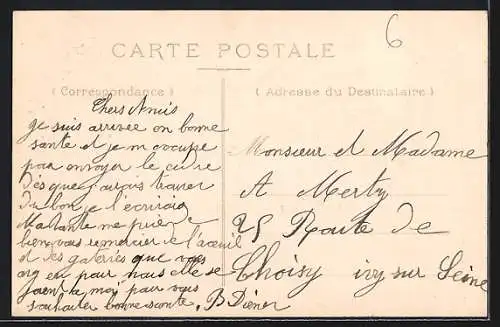 6
CARTE POSTALE
(Correspondance)
Chers Amis
je suis arrivee on bonne
sante et je m occuppe
pour envoyer le cuire
Des que j'aurais trouver
Du bon je l'ecrirais
Ma tante me prie de
bien vous remercier de l'aceuil
et des galeries que vous
avez eu pour nous elle se
joent a moi pour vous
souhaiter bonne sante. B Diener
(Adresse du Destinataire)
Monsieur et Madame
A Merty
25 Route De
Choisy ivry sur Seine